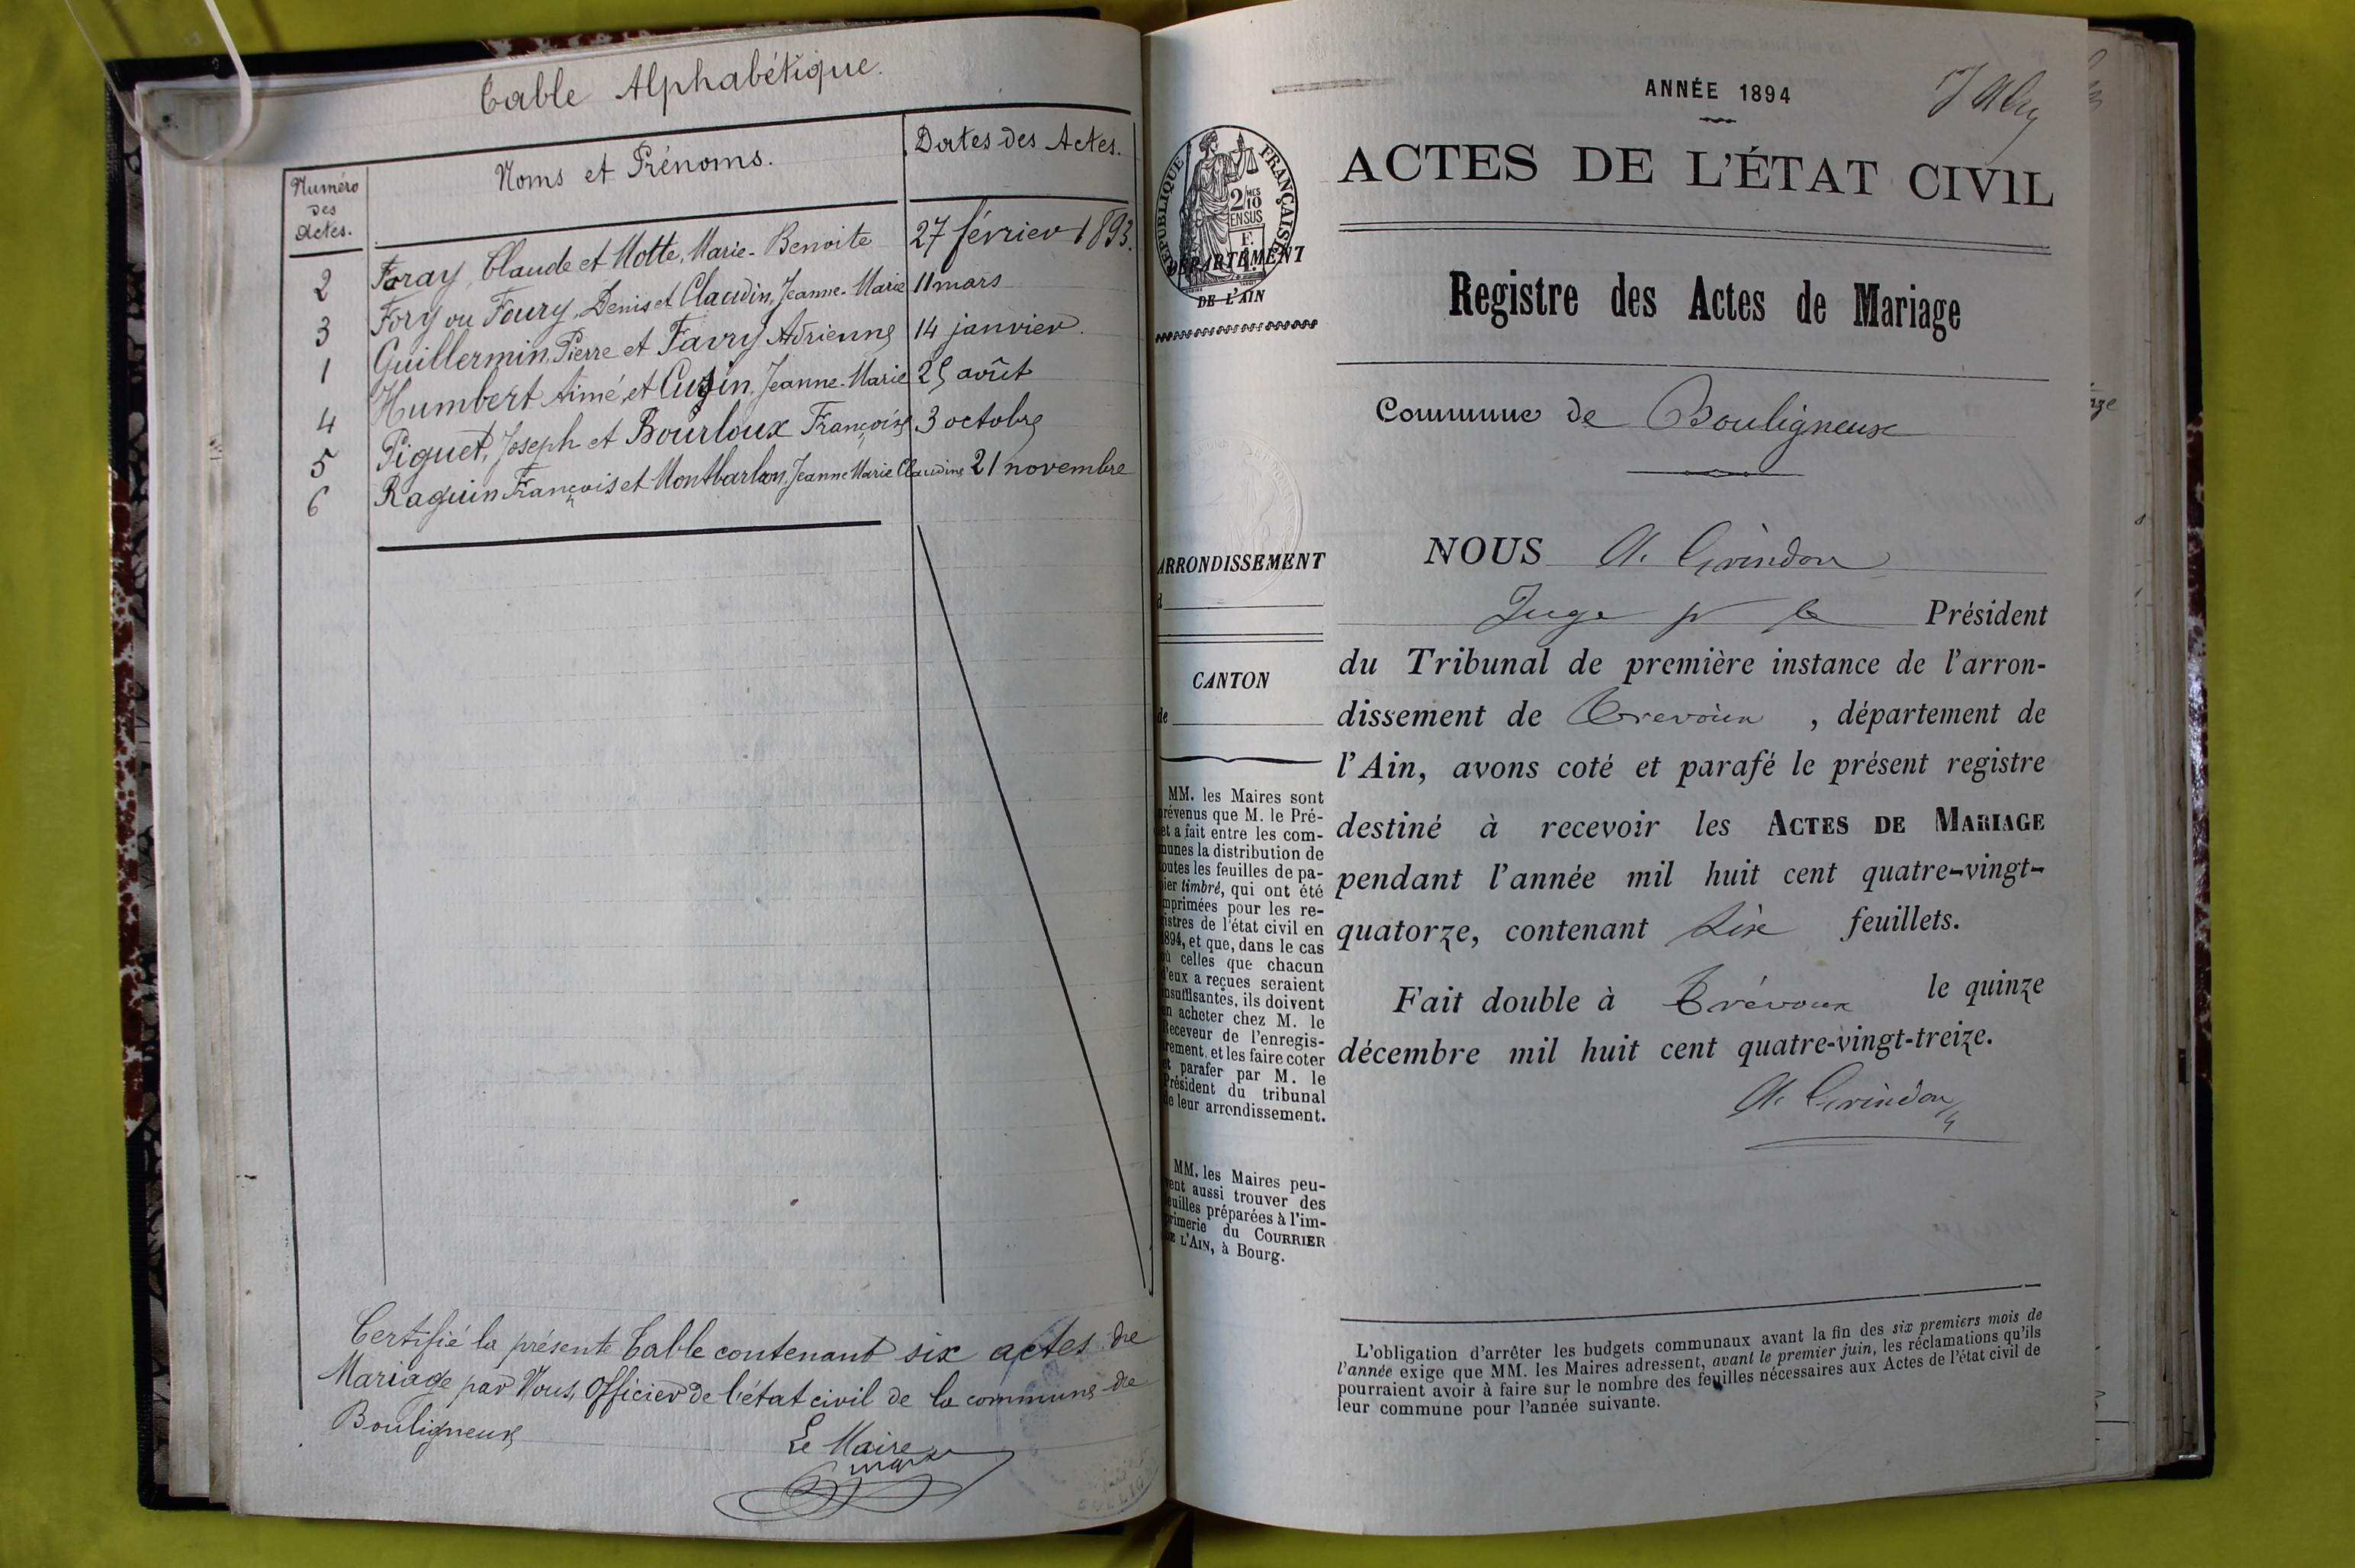 Table Alphabétique.
Numéro des Actes.
Noms et Prénoms.
Dates des Actes.
2 Foray, Claude et Motte, Marie-Benoite 27 février 1893.
3 Fory ou Foury, Denis et Claudin, Jeanne-Marie 11 mars
1 Guillermin, Pierre et Favry Adrienne 14 janvier.
4 Humbert Aimé, et Cuzin, Jeanne-Marie 25 août
5 Piguet, Joseph et Bourloux Françoise 3 octobre
6 Raguin François et Montbarbon, Jeanne Marie Claudine 21 novembre
Certifié la présente Table contenant six actes de
Mariage par Nous, Officier de l'état civil de la commune de
Bouligneux
Le Maire
ANNÉE 1894
ACTES DE L'ÉTAT CIVIL
RÉPUBLIQUE FRANÇAISE
2/10 MES
EN SUS
DÉPARTEMENT
DE L'AIN
Registre des Actes de Mariage
Commune de Bouligneux
ARRONDISSEMENT
d
CANTON
de
MM. les Maires sont
prévenus que M. le Pré-
fet a fait entre les com-
munes la distribution de
toutes les feuilles de pa-
pier timbré, qui ont été
imprimées pour les re-
gistres de l'état civil en
1894, et que, dans le cas
où celles que chacun
d'eux a reçues seraient
insuffisantes, ils doivent
en acheter chez M. le
Receveur de l'enregis-
trement, et les faire coter
et parafer par M. le
Président du tribunal
de leur arrondissement.
MM. les Maires peu-
vent aussi trouver des
feuilles préparées à l'im-
primerie du COURRIER
DE L'AIN, à Bourg.
NOUS A. Grindon
Juge pr le Président
du Tribunal de première instance de l'arron-
dissement de Trevoux, département de
l'Ain, avons coté et parafé le présent registre
destiné à recevoir les ACTES DE MARIAGE
pendant l'année mil huit cent quatre-vingt-
quatorze, contenant six feuillets.
Fait double à Trévoux le quinze
décembre mil huit cent quatre-vingt-treize.
A. Grindon
L'obligation d'arrêter les budgets communaux avant la fin des six premiers mois de
l'année exige que MM. les Maires adressent, avant le premier juin, les réclamations qu'ils
pourraient avoir à faire sur le nombre des feuilles nécessaires aux Actes de l'état civil de
leur commune pour l'année suivante.